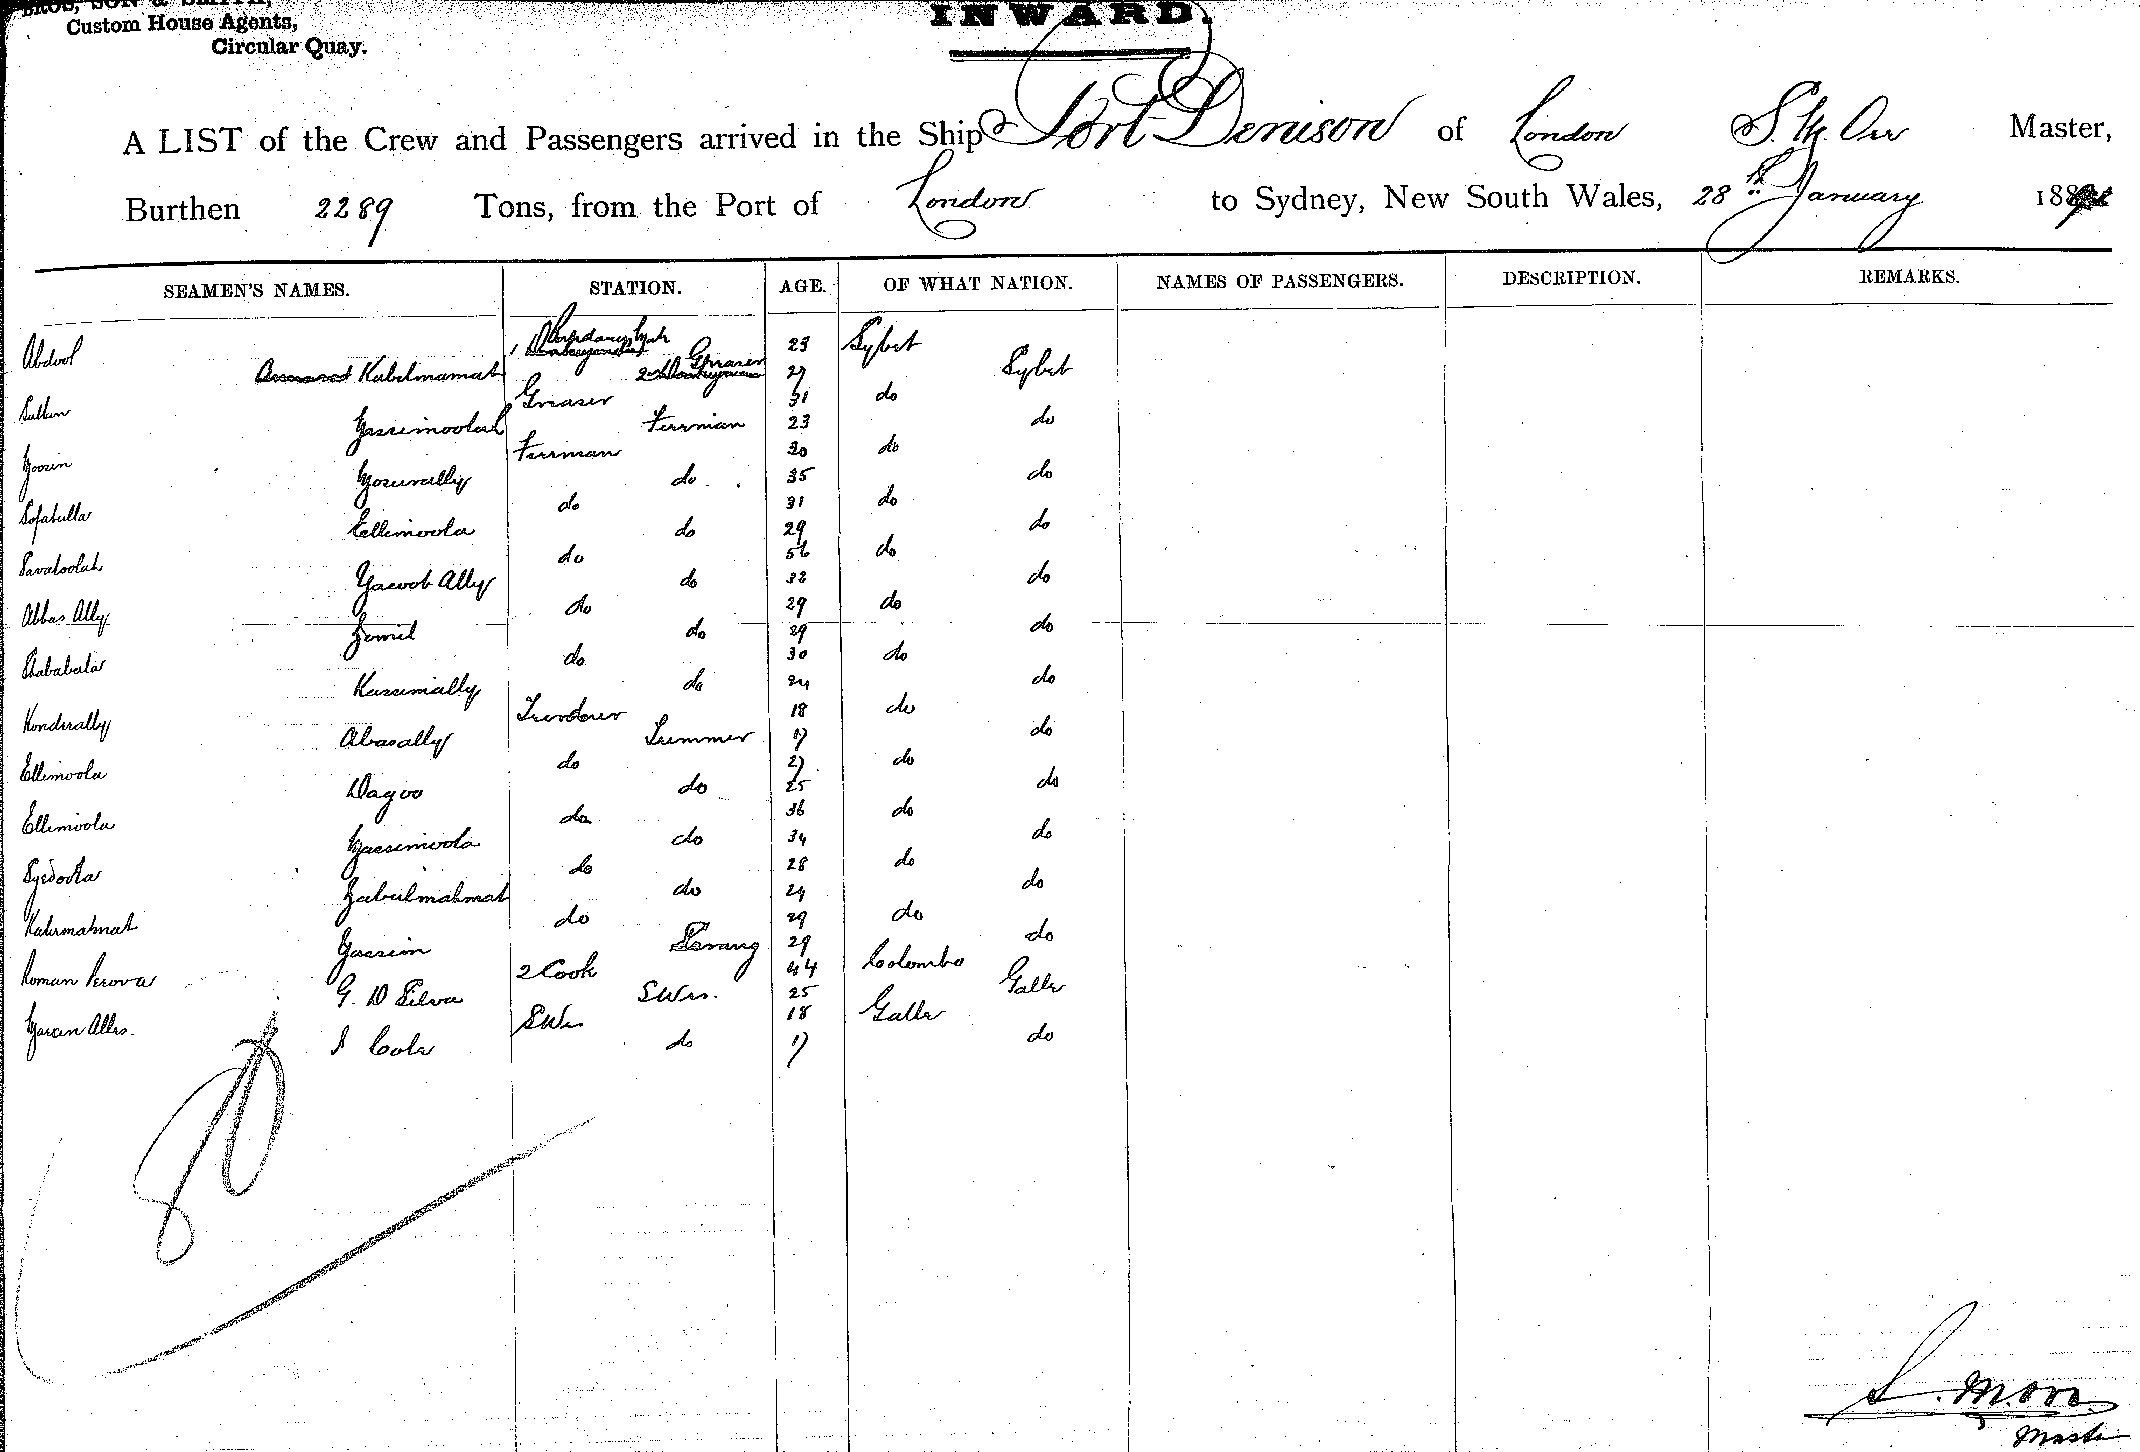 BROS, SON & SMITH,
Custom House Agents,
Circular Quay.
INWARD.
A LIST of the Crew and Passengers arrived in the Ship Port Denison of London S. M. Orr Master,
Burthen 2289 Tons, from the Port of London to Sydney, New South Wales, 28th January 189
SEAMEN'S NAMES. STATION. AGE. OF WHAT NATION. NAMES OF PASSENGERS. DESCRIPTION. REMARKS.
Abdool 23 Sylet
Kabilmamat Greaser 27 Sylet
Greaser 31 do
Gassimoolah Fireman 23 do
Fireman 30 do
do 35 do
Sofatulla do 31 do
Ellimoola do 29 do
do 56 do
Yacoob Ally do 32 do
Abbas Ally do 29 do
Jomil do 29 do
do 30 do
Kassimally do 24 do
18 do
Abasally Trimmer 17 do
Ellimoola do 27 do
Dagoo do 25 do
Ellimoola do 36 do
Gassimoola do 34 do
Syedoolla do 28 do
Zabulmahmat do 24 do
Kalirmahmat do 29 do
Gassim 29 do
Roman Perova 2 Cook 44 Colombo
G. D Silva SWs. 25 Galle
SWs 18 Galle
do 17 do
80
S. M. Orr
Master